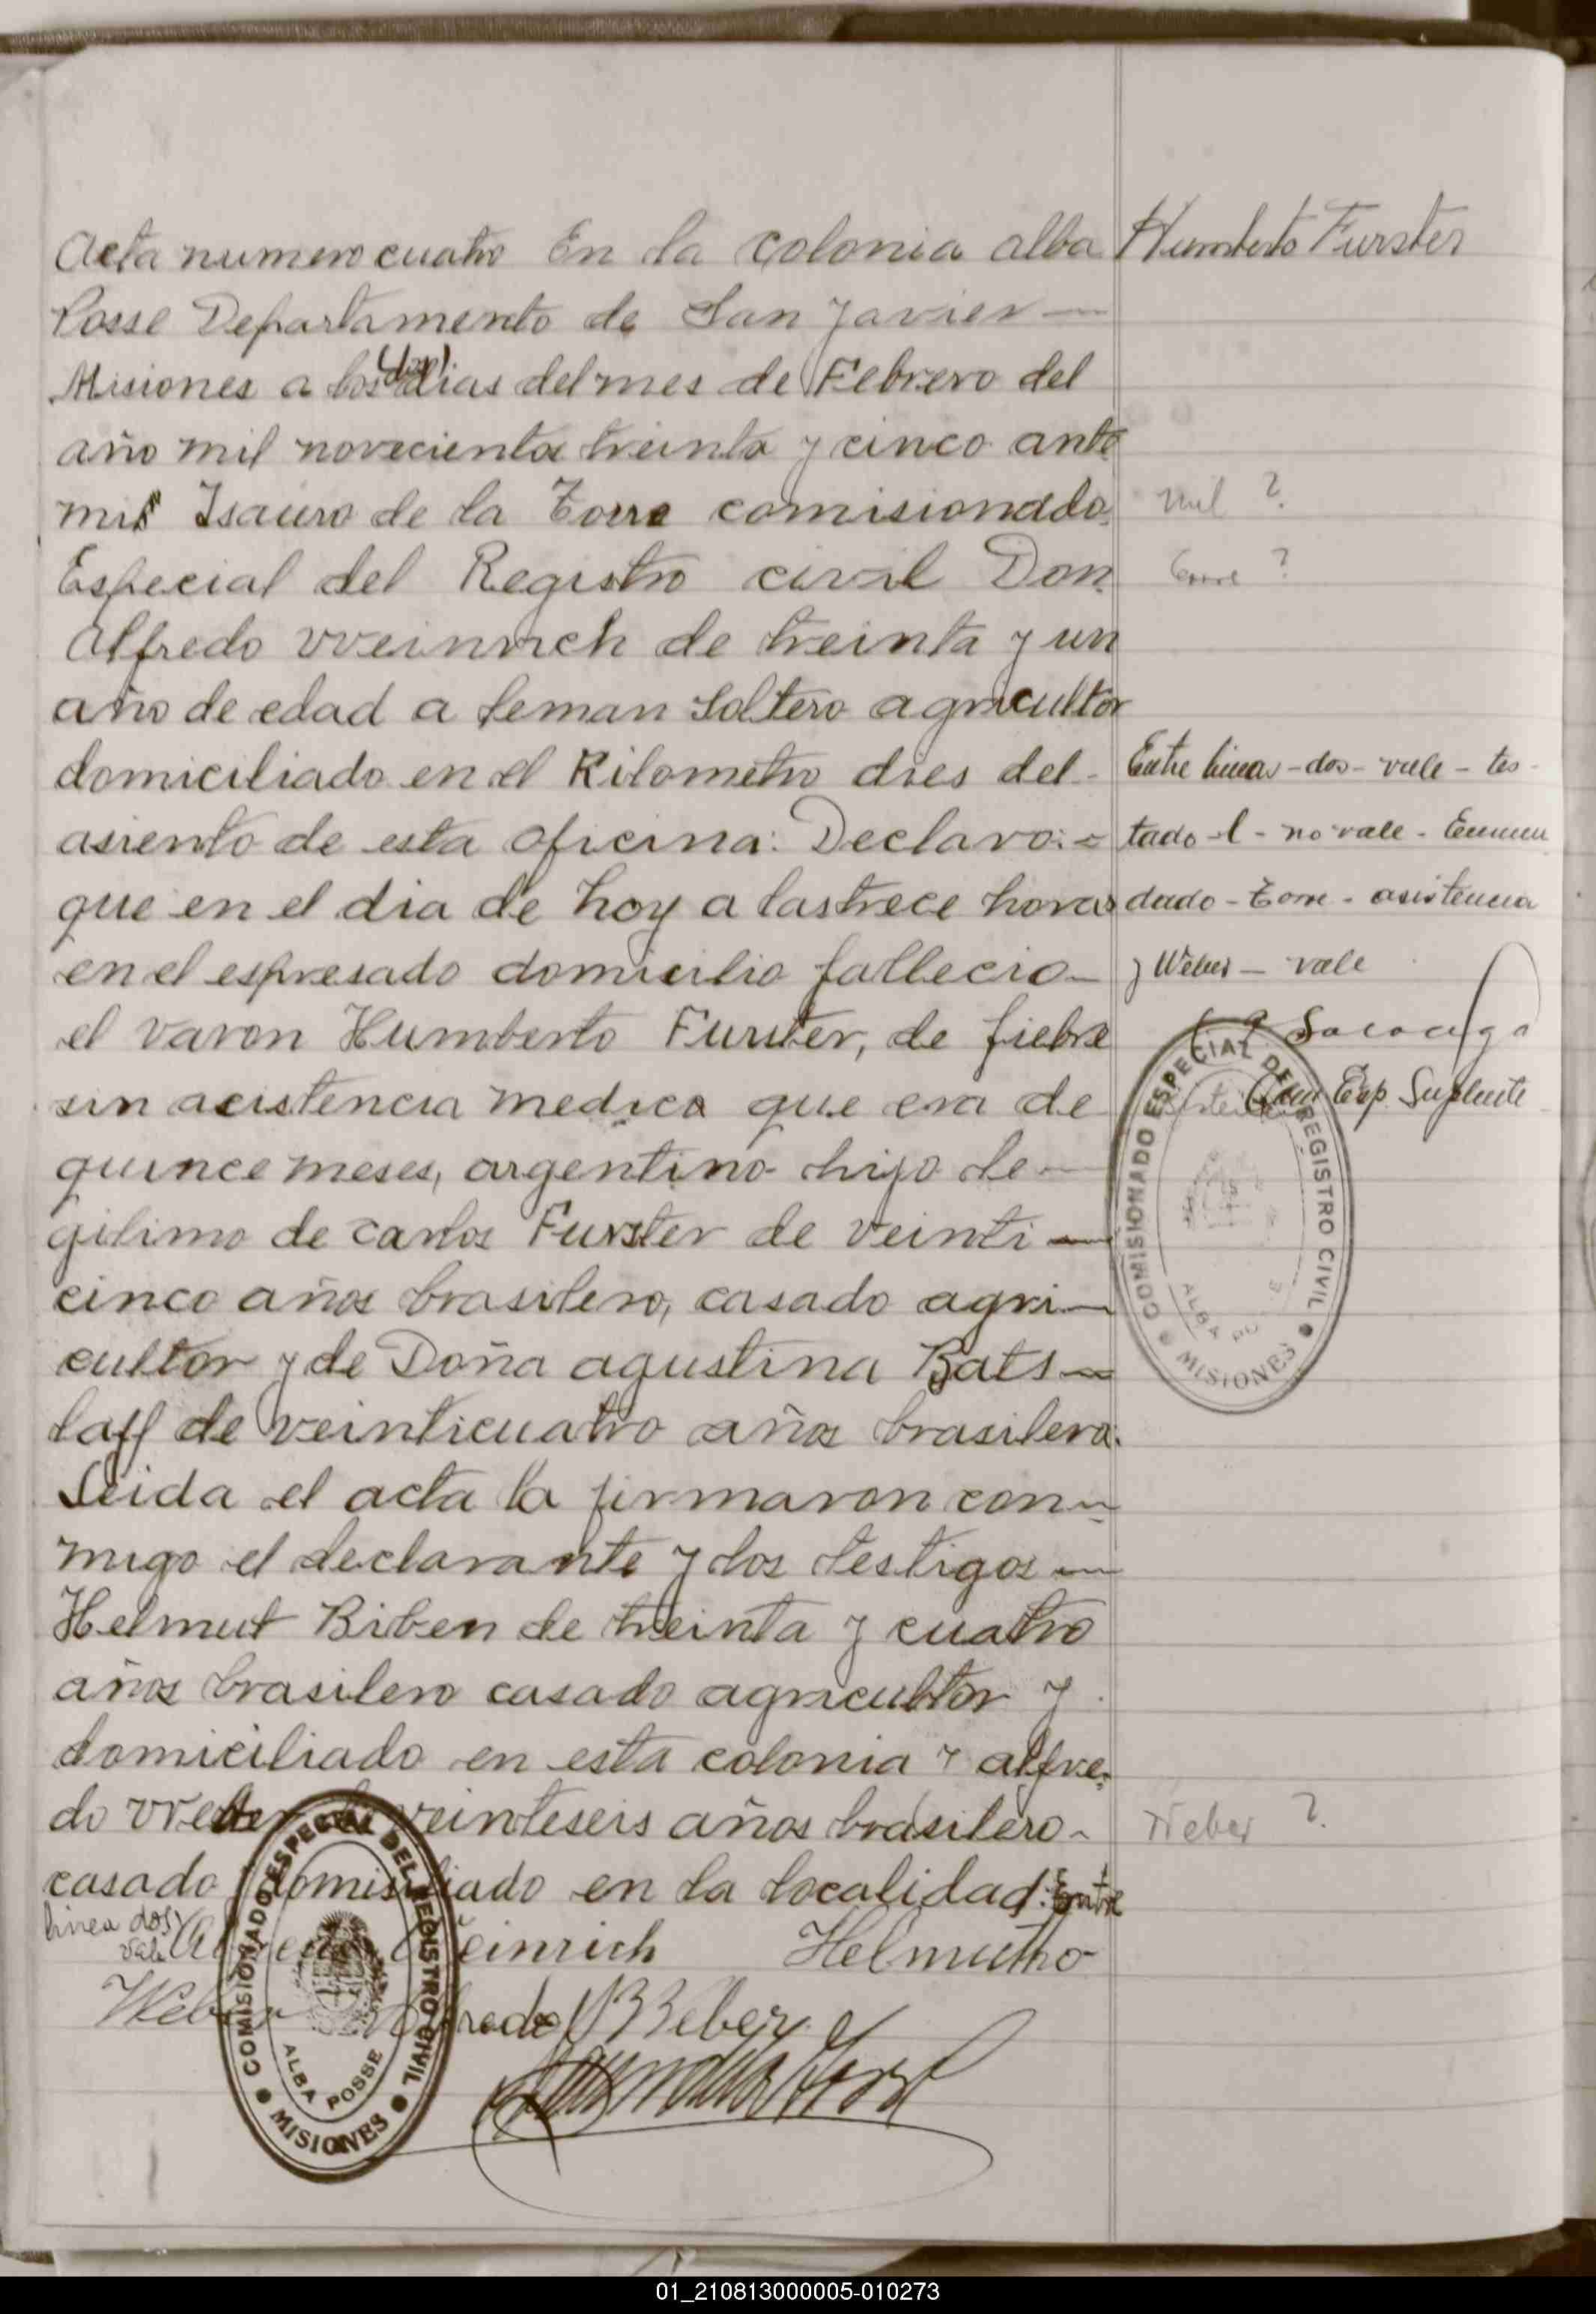 Acta numero cuatro En la Colonia Alba
Posse Departamento de San Javier
(dos)
Misiones a los dias del mes de Febrero del
año mil novecientos treinta y cinco ante
mil Isauro de la Torre comisionado
Especial del Registro civil Don
Alfredo VVeinrich de treinta y un
año de edad a leman Soltero agricultor
domiciliado en el Kilometro dies del
asiento de esta Oficina: Declaro:=
que en el dia de hoy a las trece horas
en el espresado domicilio fallecio
el varon Humberto Furster, de fiebre
sin asistencia medica que era de
quince meses, argentino hijo le
gitimo de Carlos Furster de veinti
cinco años brasilero, casado agri
cultor y de Doña Agustina Bats
laff de veinticuatro años brasilera.
Leida el acta la firmaron con
migo el declarante y los testigos
Helmut Biben de treinta y cuatro
años brasilero casado agricultor y
domiciliado en esta colonia y Alfre
do VVeber de veinteseis años brasilero
casado domisiliado en la localidad. Entre
linea dos vale
Alfredo Weinrich Helmutho
Weber Alfredo WBeber
Humberto Furster
mil ?
Torre ?
Entre lineas - dos - vale - tes
tado - l - no vale - Enmen
dado - Torre - asistencia
y Weber - vale
Com Esp. Suplente
COMISIONADO ESPECIAL DEL REGISTRO CIVIL
ALBA POSSE
MISIONES
Weber ?
COMISIONADO ESPECIAL DEL REGISTRO CIVIL
ALBA POSSE
MISIONES
01_210813000005-010273